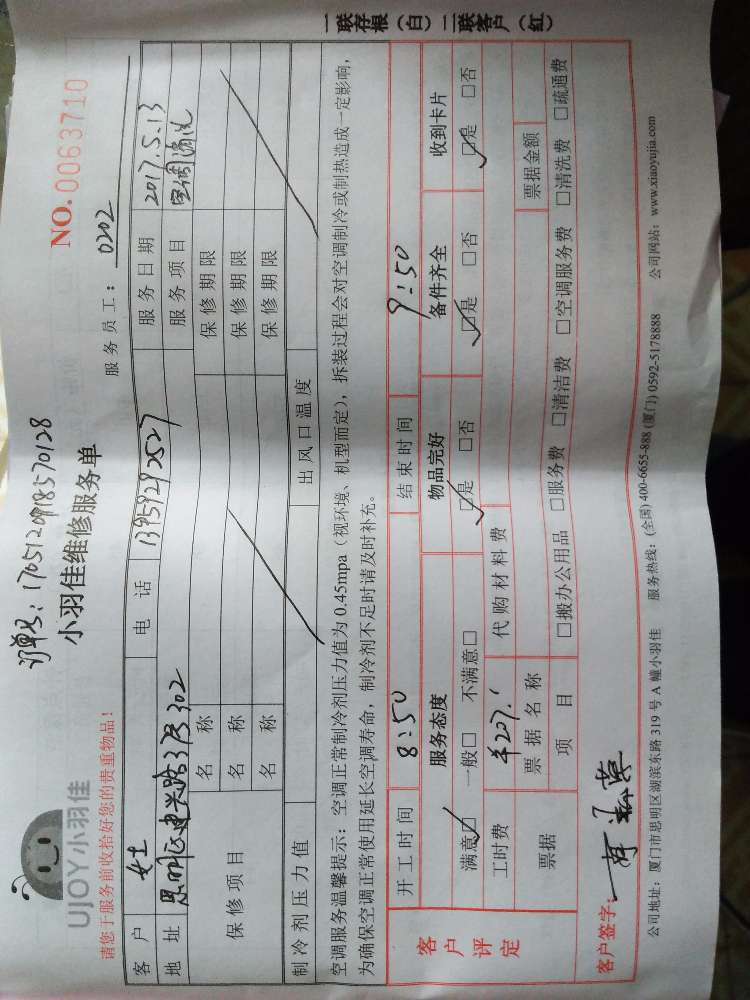 订单号：1705120918570128
UJOY小羽佳
小羽佳维修服务单
NO.0063710
请您于服务前收拾好您的贵重物品！
服务员工：0202
客户 女士 电话 13959292527 服务日期 2017.5.13
地址 思明区 路 302 服务项目 空调清洗
保修项目 名称 保修期限
名称 保修期限
名称 保修期限
制冷剂压力值 出风口温度
空调服务温馨提示：空调正常制冷剂压力值为0.45mpa（视环境、机型而定），拆装过程会对空调制冷或制热造成一定影响，
为确保空调正常使用延长空调寿命，制冷剂不足时请及时补充。
客户评定 开工时间 8:50 结束时间 9:50
服务态度 物品完好 备件齐全 收到卡片
满意□ 一般□ 不满意□ □是 □否 □是 □否 □是 □否
工时费 ¥227. 代购材料费
票据 票据名称 票据金额
项目 □搬办公用品 □服务费 □清洁费 □空调服务费 □清洗费 □疏通费
客户签字：
公司地址：厦门市思明区湖滨东路319号A幢小羽佳 服务热线：(全国)400-6655-888(厦门)0592-5178888 公司网站：www.xiaoyujia.com
一联存根（白）二联客户（红）